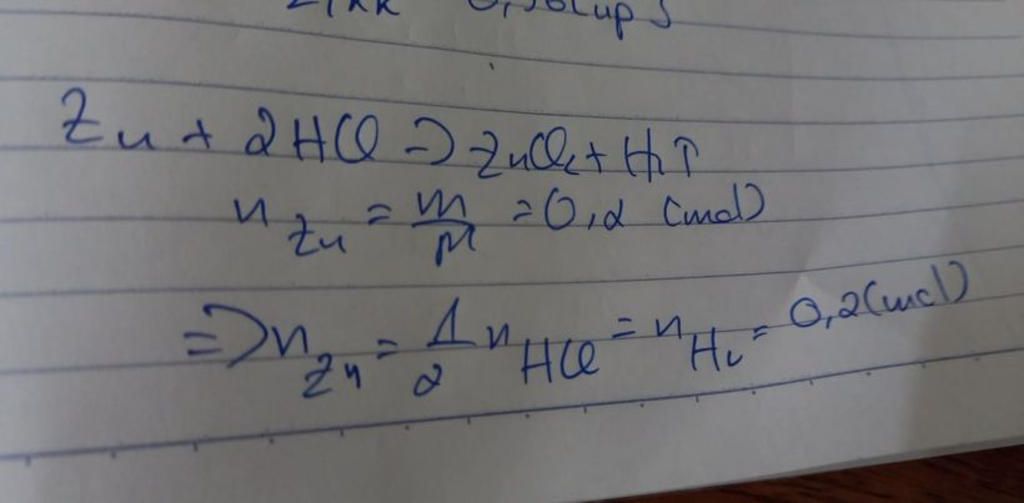 Zn + 2HCl → ZnCl₂ + H₂↑
n_Zn = m/M = 0,2 (mol)
⇒ n_Zn = 1/2 n_HCl = n_H₂ = 0,2 (mol)